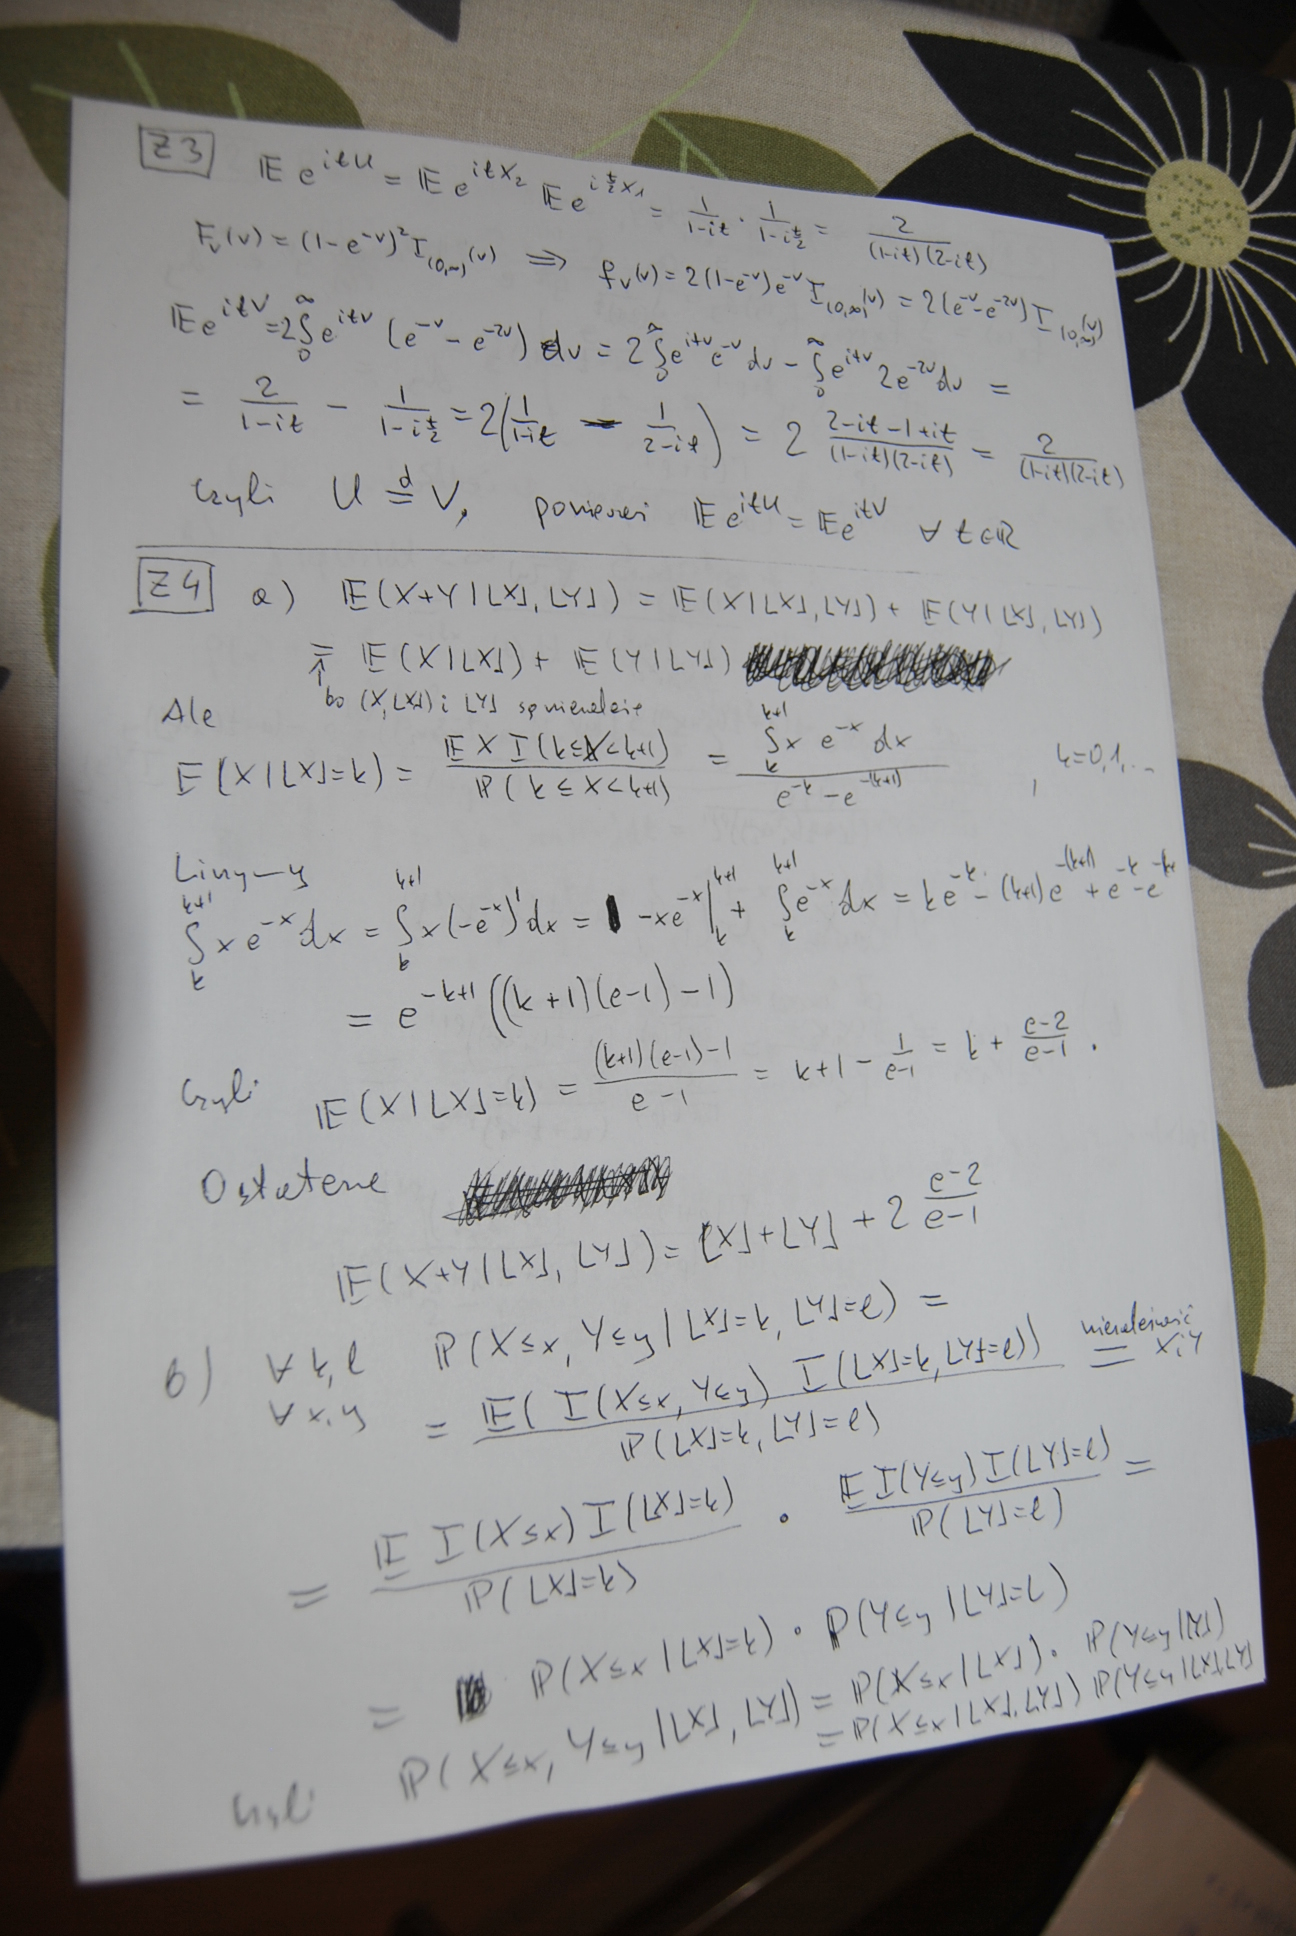 Z3 𝔼 e^{itU} = 𝔼 e^{itX_2} 𝔼 e^{i\frac{t}{2}X_1} = \frac{1}{1-it} · \frac{1}{1-i\frac{t}{2}} = \frac{2}{(1-it)(2-it)}
F_V(v) = (1-e^{-v})^2 I_{(0,∞)}(v) ⟹ f_V(v) = 2(1-e^{-v})e^{-v} I_{(0,∞)}(v) = 2(e^{-v}-e^{-2v}) I_{(0,∞)}(v)
𝔼 e^{itV} = 2∫_0^∞ e^{itv} (e^{-v} - e^{-2v}) dv = 2∫_0^∞ e^{itv} e^{-v} dv - ∫_0^∞ e^{itv} 2e^{-2v} dv =
= \frac{2}{1-it} - \frac{1}{1-i\frac{t}{2}} = 2(\frac{1}{1-it} - \frac{1}{2-it}) = 2 \frac{2-it-1+it}{(1-it)(2-it)} = \frac{2}{(1-it)(2-it)}
Czyli U \stackrel{d}{=} V, ponieważ 𝔼 e^{itU} = 𝔼 e^{itV} ∀ t∈ℝ
Z4 a) 𝔼(X+Y|⌊X⌋,⌊Y⌋) = 𝔼(X|⌊X⌋,⌊Y⌋) + 𝔼(Y|⌊X⌋,⌊Y⌋)
= 𝔼(X|⌊X⌋) + 𝔼(Y|⌊Y⌋)
↑ bo (X,⌊X⌋) i ⌊Y⌋ są niezależne
Ale
𝔼(X|⌊X⌋=k) = \frac{𝔼 X I(k≤X<k+1)}{ℙ(k≤X<k+1)} = \frac{∫_k^{k+1} x e^{-x} dx}{e^{-k}-e^{-(k+1)}} , k=0,1,...
Liczymy
∫_k^{k+1} x e^{-x} dx = ∫_k^{k+1} x(-e^{-x})' dx = -xe^{-x}|_k^{k+1} + ∫_k^{k+1} e^{-x} dx = ke^{-k} - (k+1)e^{-(k+1)} + e^{-k} - e^{-k+}
= e^{-k+1} ((k+1)(e-1) - 1)
Czyli 𝔼(X|⌊X⌋=k) = \frac{(k+1)(e-1)-1}{e-1} = k+1 - \frac{1}{e-1} = k + \frac{e-2}{e-1} .
Ostatecznie
𝔼(X+Y|⌊X⌋,⌊Y⌋) = ⌊X⌋+⌊Y⌋ + 2 \frac{e-2}{e-1}
b) ∀ k,l ∀ x,y ℙ(X≤x, Y≤y|⌊X⌋=k, ⌊Y⌋=l) =
= \frac{𝔼(I(X≤x, Y≤y) I(⌊X⌋=k, ⌊Y⌋=l))}{ℙ(⌊X⌋=k, ⌊Y⌋=l)} \stackrel{niezależność}{=} X i Y
= \frac{𝔼 I(X≤x) I(⌊X⌋=k)}{ℙ(⌊X⌋=k)} · \frac{𝔼 I(Y≤y) I(⌊Y⌋=l)}{ℙ(⌊Y⌋=l)} =
= ℙ(X≤x|⌊X⌋=k) · ℙ(Y≤y|⌊Y⌋=l)
Czyli ℙ(X≤x, Y≤y|⌊X⌋,⌊Y⌋) = ℙ(X≤x|⌊X⌋) · ℙ(Y≤y|⌊Y⌋)
= ℙ(X≤x|⌊X⌋,⌊Y⌋) ℙ(Y≤y|⌊X⌋,⌊Y⌋)